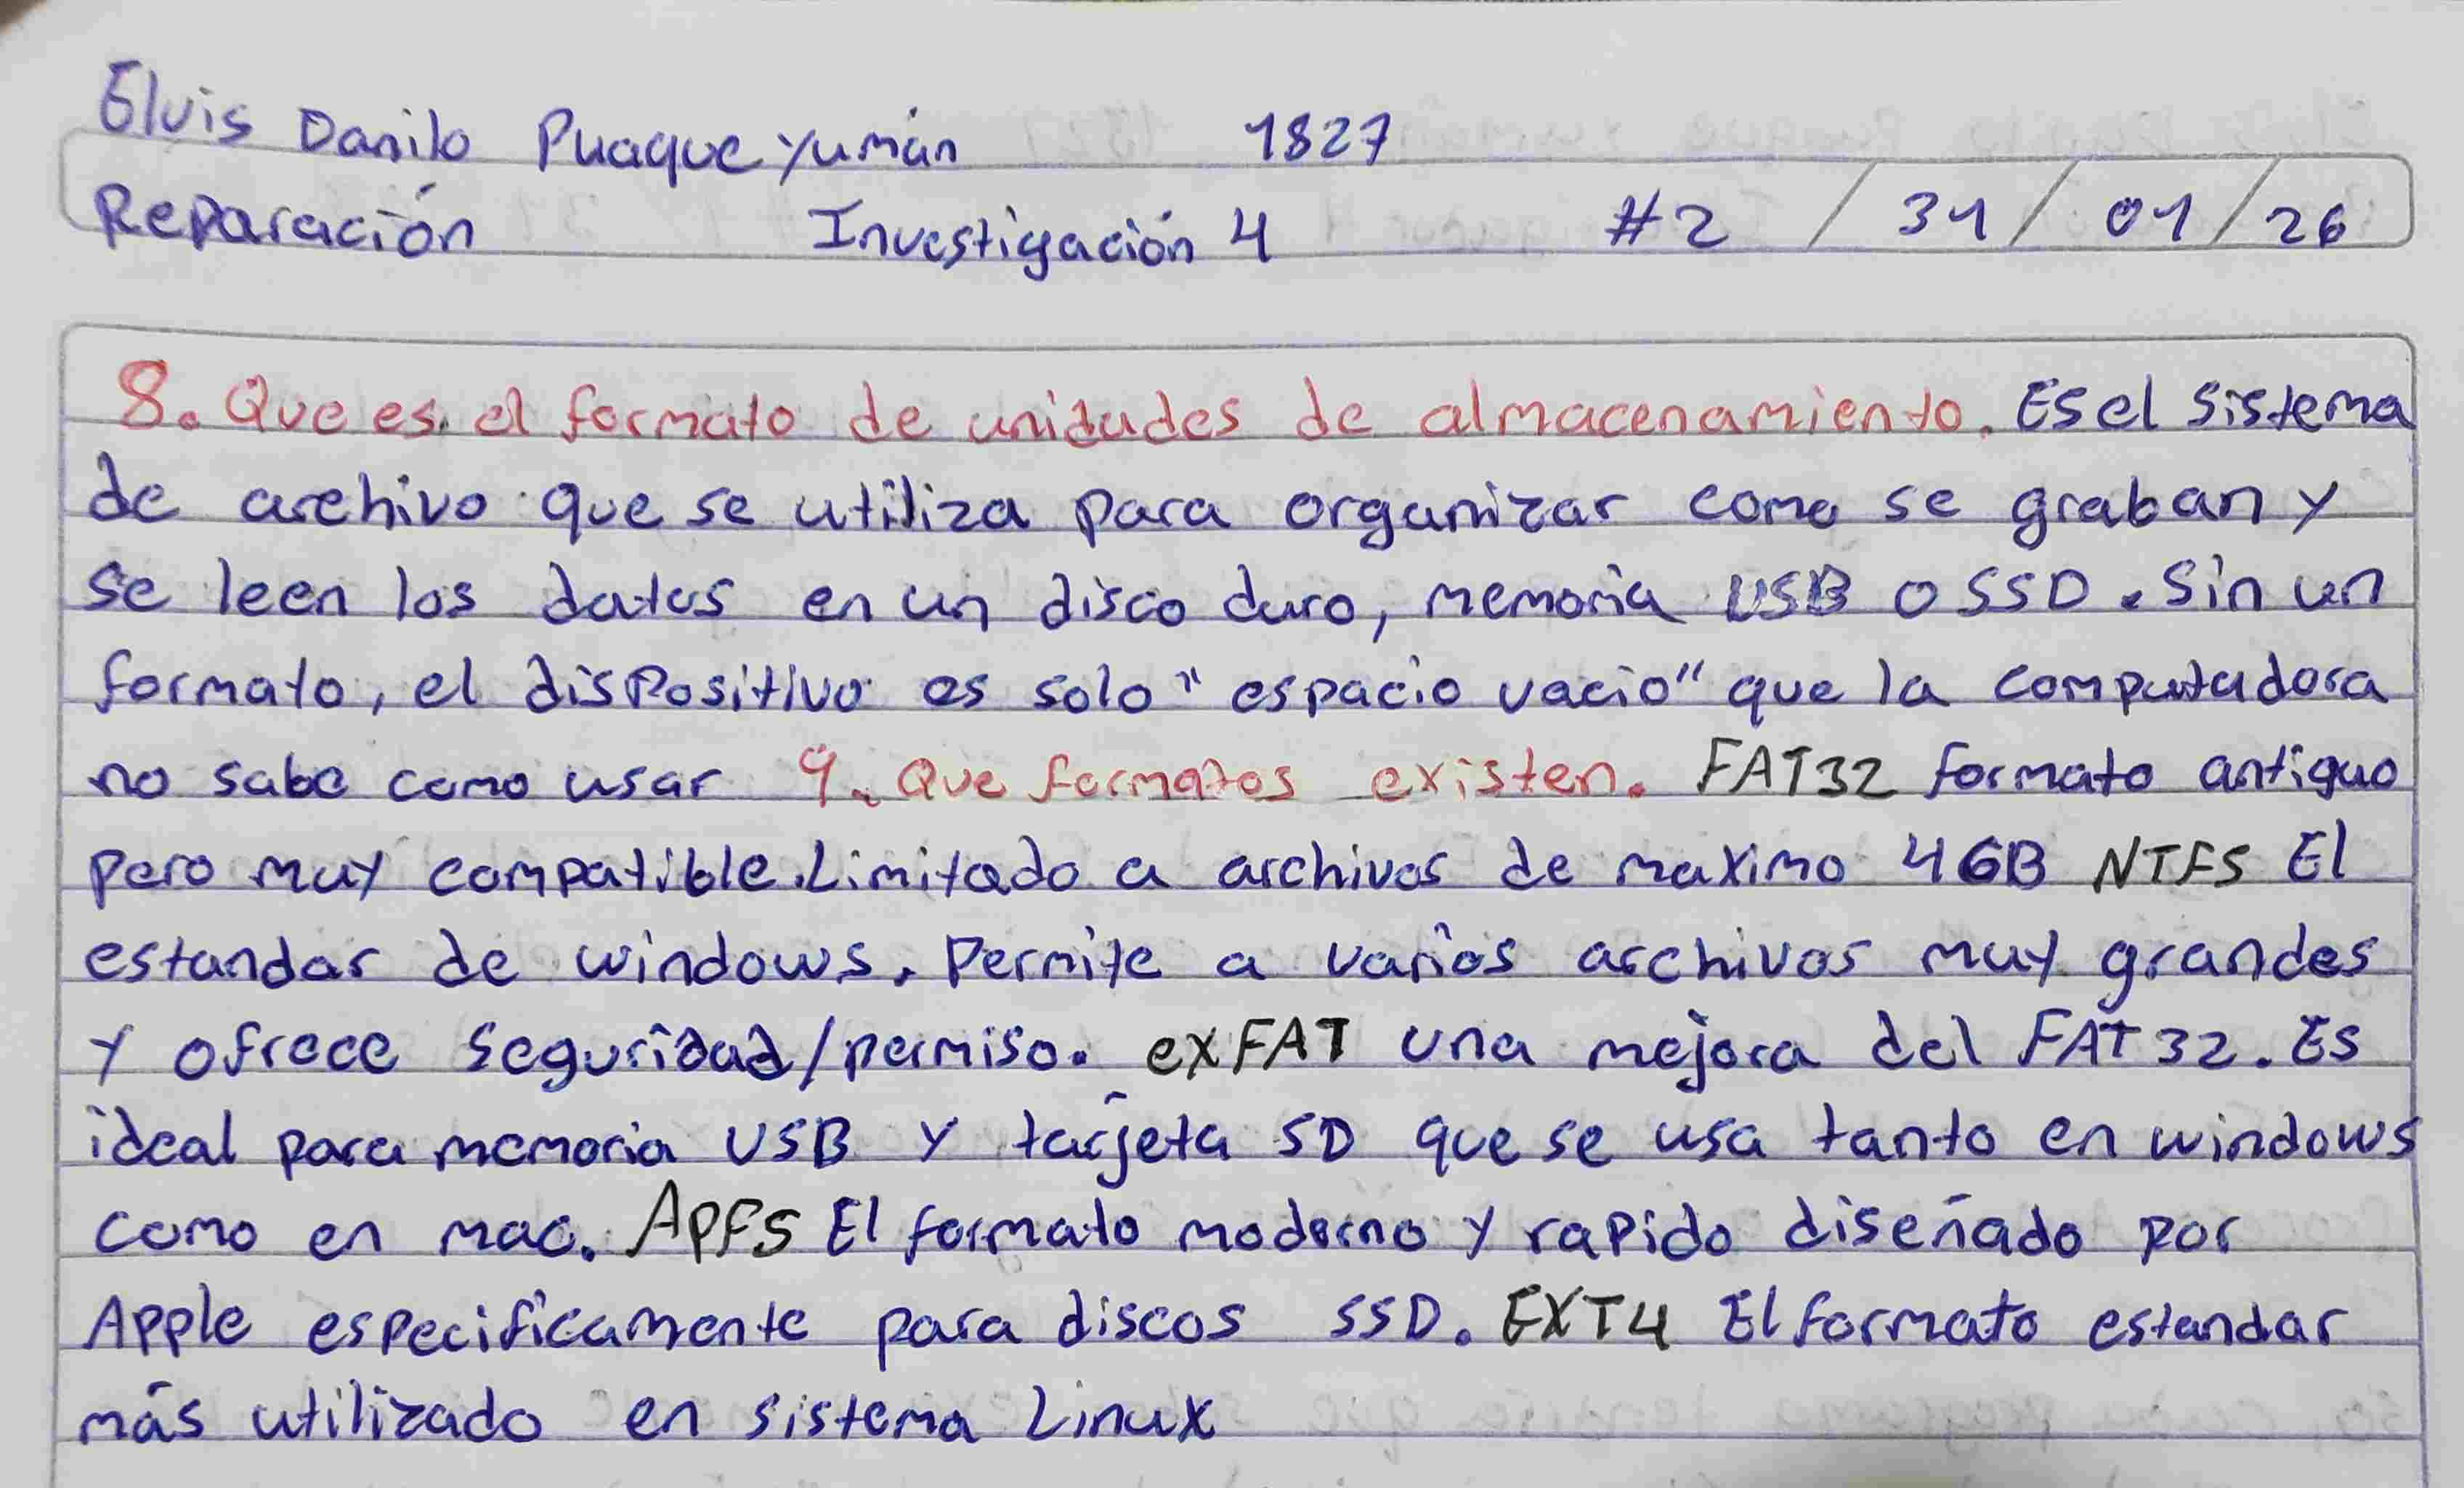 Elvis Danilo Puaque Yumán 1827
Reparación Investigación 4 #2 / 31 / 01 / 26
8. Que es el formato de unidades de almacenamiento. Es el sistema
de archivo que se utiliza para organizar como se graban y
se leen los datos en un disco duro, memoria USB o SSD. Sin un
formato, el dispositivo es solo "espacio vacio" que la computadora
no sabe como usar 9. Que formatos existen. FAT32 formato antiguo
pero muy compatible. Limitado a archivos de maximo 4GB NTFS El
estandar de windows. Permite a varios archivos muy grandes
y ofrece seguridad/permiso. exFAT una mejora del FAT32. Es
ideal para memoria USB y tarjeta SD que se usa tanto en windows
como en mac. APFS El formato moderno y rapido diseñado por
Apple especificamente para discos SSD. EXT4 El formato estandar
más utilizado en sistema Linux